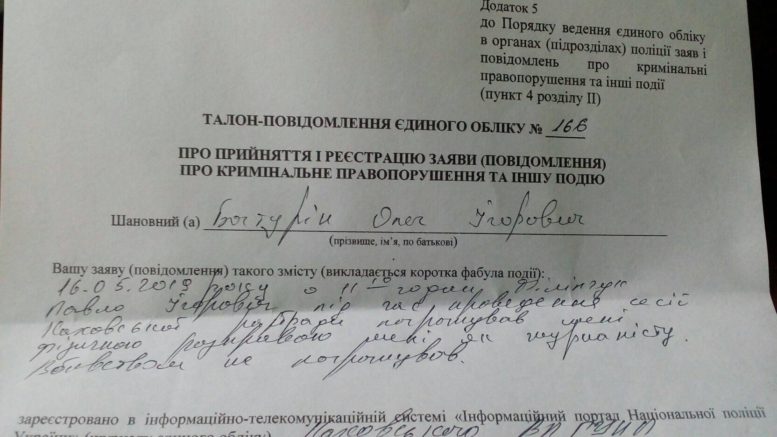 Додаток 5
до Порядку ведення єдиного обліку
в органах (підрозділах) поліції заяв і
повідомлень про кримінальні
правопорушення та інші події
(пункт 4 розділу II)
ТАЛОН-ПОВІДОМЛЕННЯ ЄДИНОГО ОБЛІКУ № 166
ПРО ПРИЙНЯТТЯ І РЕЄСТРАЦІЮ ЗАЯВИ (ПОВІДОМЛЕННЯ)
ПРО КРИМІНАЛЬНЕ ПРАВОПОРУШЕННЯ ТА ІНШУ ПОДІЮ
Шановний (а) Олег Ігорович
(прізвище, ім'я, по батькові)
Вашу заяву (повідомлення) такого змісту (викладається коротка фабула події):
16.05.2019 року о 11 10 годин
Павло Ігорович під час проведення сесії
Каховської погрожував мені
фізичною розправою мені як журналісту.
Вбивством не погрожував.
зареєстровано в інформаційно-телекомунікаційній системі «Інформаційний портал Національної поліції